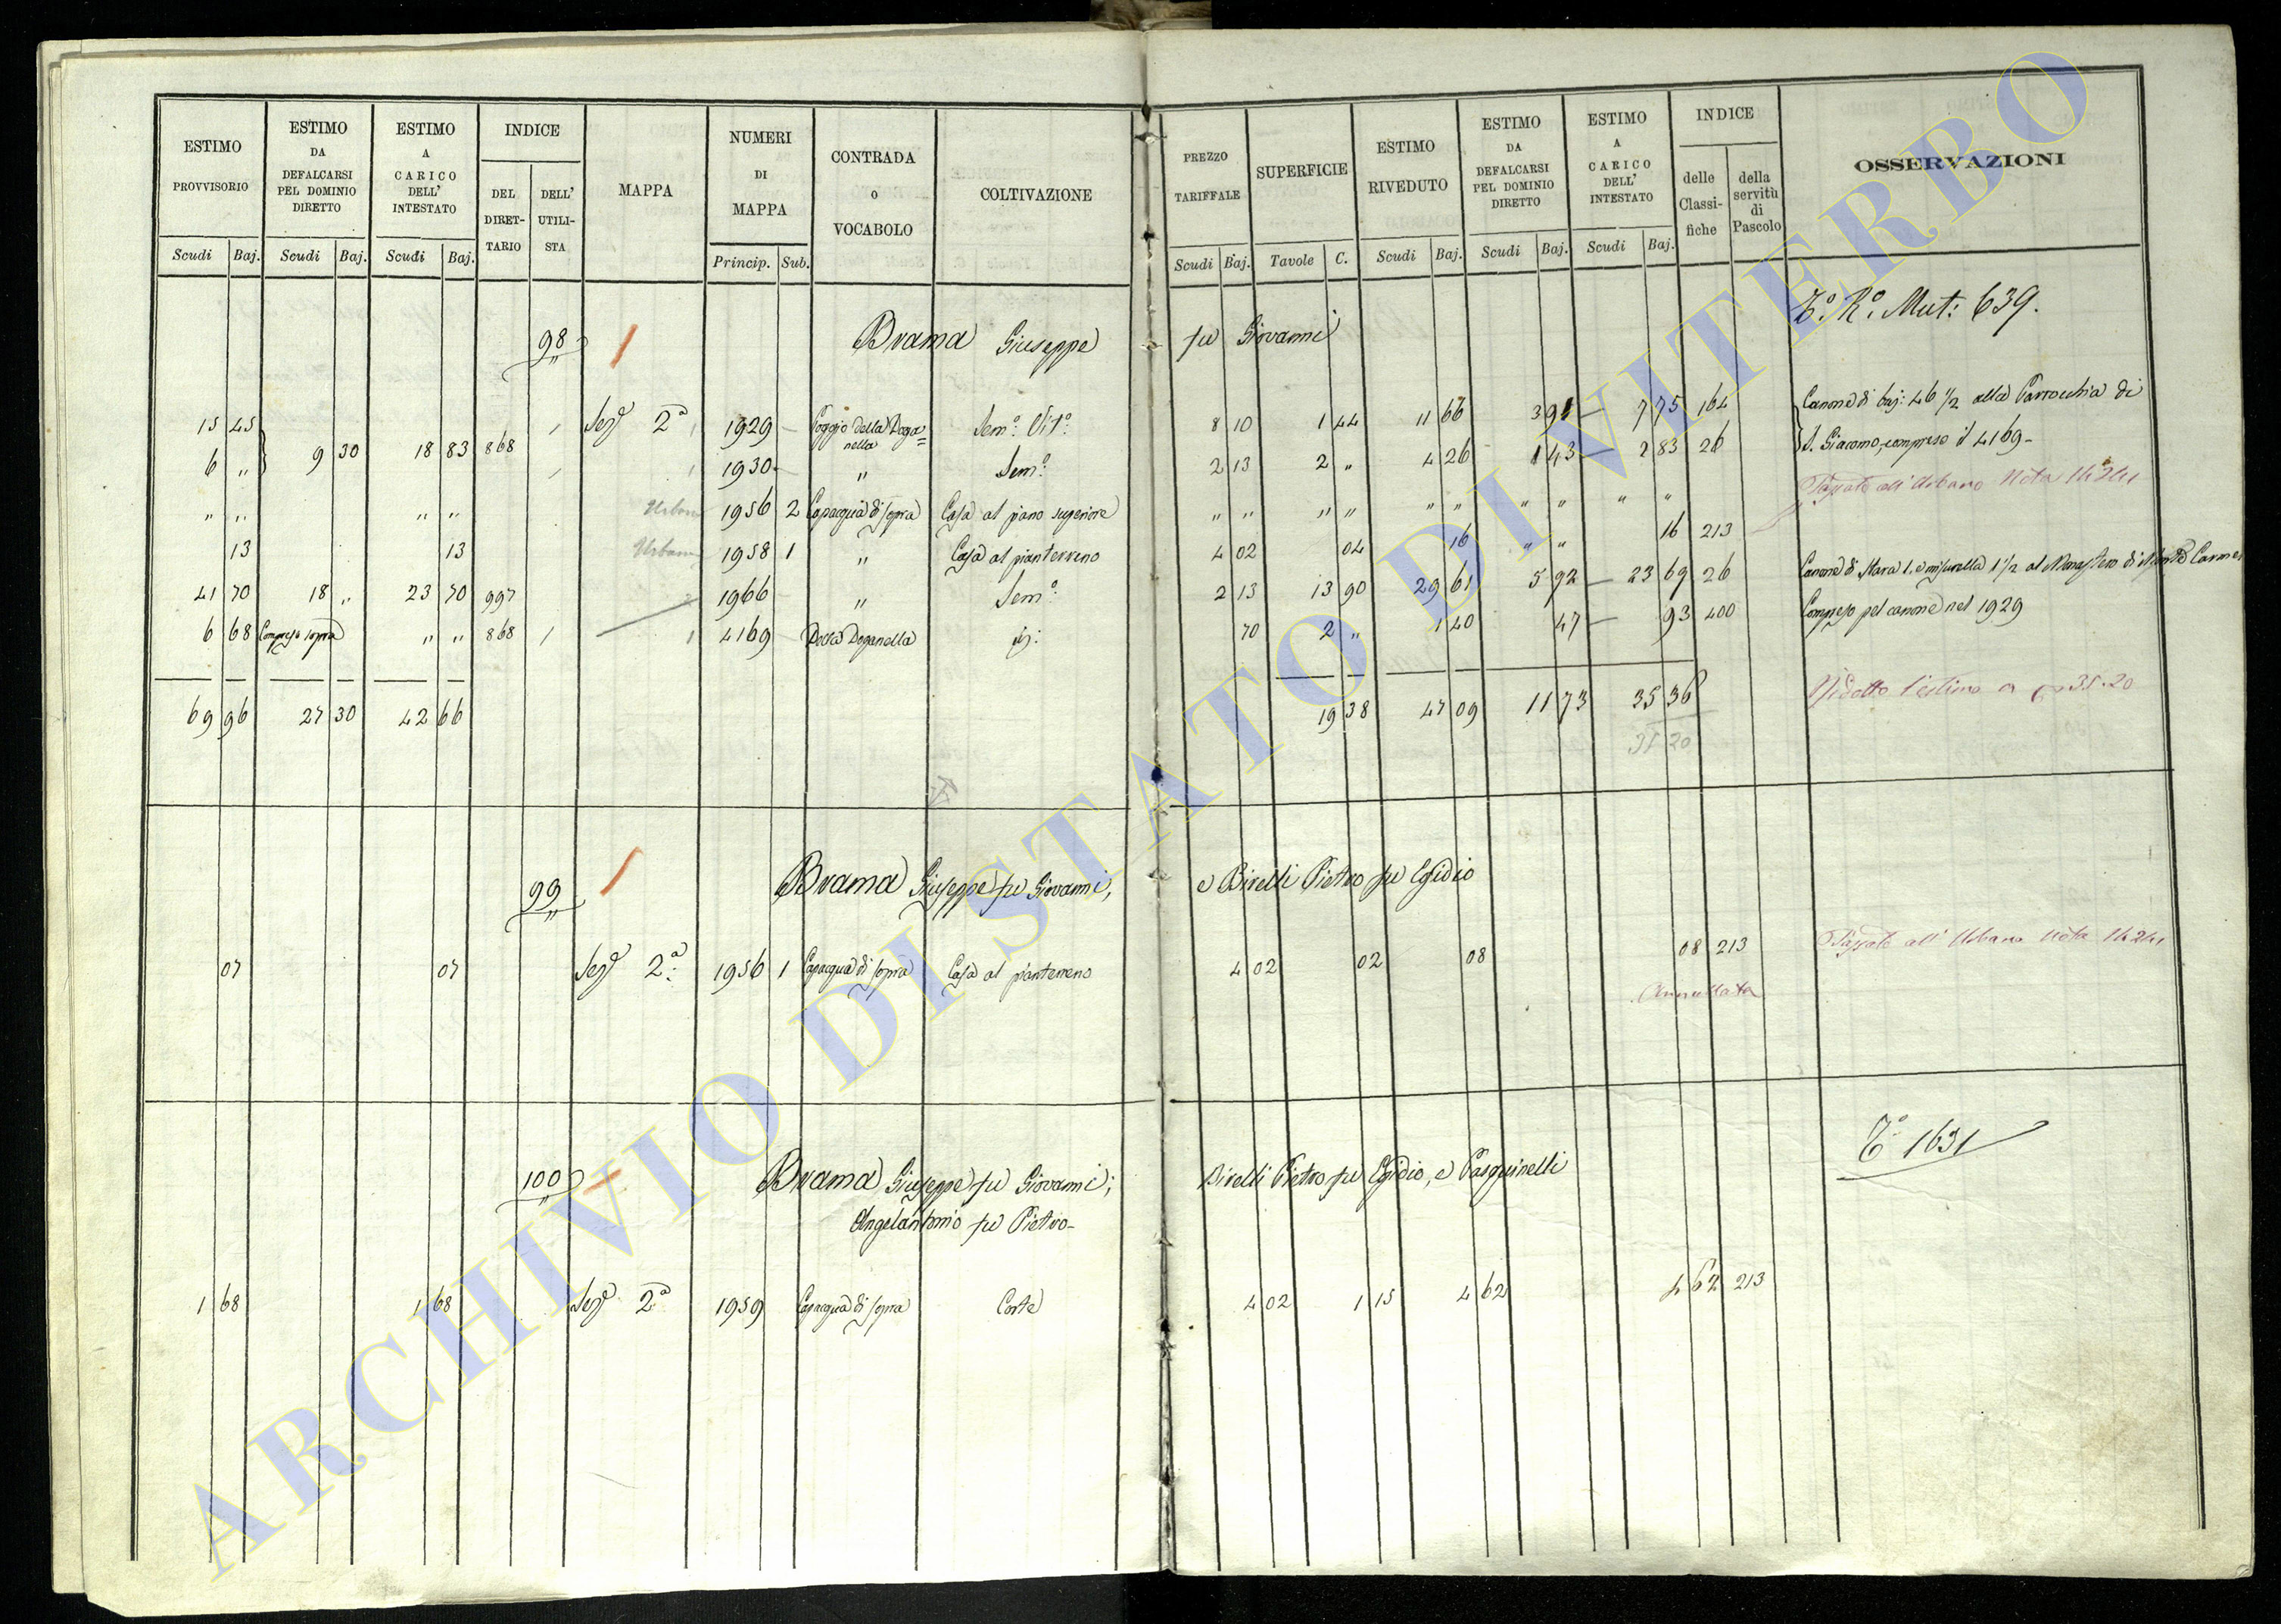 ESTIMO PROVVISORIO
ESTIMO DA DEFALCARSI PEL DOMINIO DIRETTO
ESTIMO A CARICO DELL' INTESTATO
INDICE
DEL DIRET-TARIO
DELL' UTILI-STA
MAPPA
NUMERI DI MAPPA
CONTRADA O VOCABOLO
COLTIVAZIONE
PREZZO TARIFFALE
SUPERFICIE
ESTIMO RIVEDUTO
ESTIMO DA DEFALCARSI PEL DOMINIO DIRETTO
ESTIMO A CARICO DELL' INTESTATO
INDICE
delle Classi-fiche
della servitù di Pascolo
OSSERVAZIONI
Scudi Baj. Scudi Baj. Scudi Baj. Princip. Sub. Scudi Baj. Tavole C. Scudi Baj. Scudi Baj. Scudi Baj.
Tº. Rº. Mut: 639.
98 Brama Giuseppe fu Giovanni
15 45 Sezе 2ª 1929 Poggio della Doga= Semº: Vitº: 8 10 1 44 11 66 3 91 7 75 164 Canone di baj: 46 1/2 alla Parrocchia di
9 30 18 83 868 nella
6 " 1930 " Semº: 2 13 2 " 4 26 1 43 2 83 26 S. Giacomo, compreso il 4169
" " " " Urbano 1956 2 Capacqua di sopra Casa al piano superiore " " " " " " " " " " Passato all'Urbano Nota
13 13 Urbano 1958 1 " Casa al pianterreno 4 02 04 16 " " 16 213
41 70 18 " 23 70 997 1966 " Semº: 2 13 13 90 29 61 5 92 23 69 26 Canone di Stara 1. e misurella 1 1/2 al Monastero di Monte Carmel
6 68 Compreso sopra " " 868 1 4169 Della Doganella id: 70 2 " 1 40 47 93 400 Compreso pel canone nel 1929
69 96 27 30 42 66 19 38 47 09 11 73 35 36 Ridotto l'estimo a 35.20
35 20
99 Brama Giuseppe fu Giovanni, e Birelli Pietro fu Egidio
07 07 2ª: 1956 1 Capacqua di sopra Casa al pianterreno 4 02 02 08 08 213 Passato all'Urbano Nota
Annullata
Tº 1631
100 Brama Giuseppe fu Giovanni; Birelli Pietro fu Egidio, e Pasquinelli
Angelantonio fu Pietro-
1 68 1 68 2ª 1959 Capacqua di sopra Corte 4 02 1 15 4 62 4 62 213
ARCHIVIO DI STATO DI VITERBO